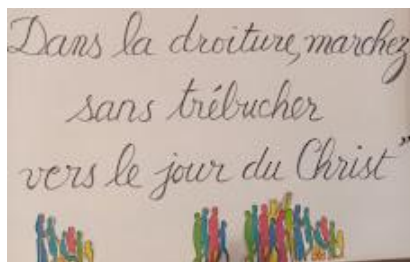 Dans la droiture, marchez
sans trébucher
vers le jour du Christ”